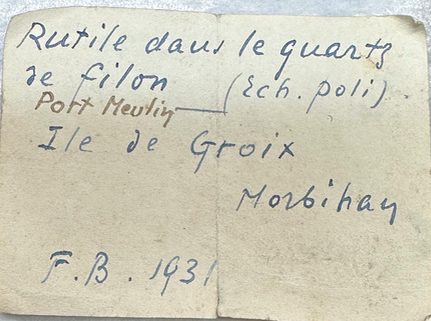 Rutile dans le quartz
de filon (Ech. poli).
Port Meulin
Ile de Groix
Morbihan
F.B. 1931